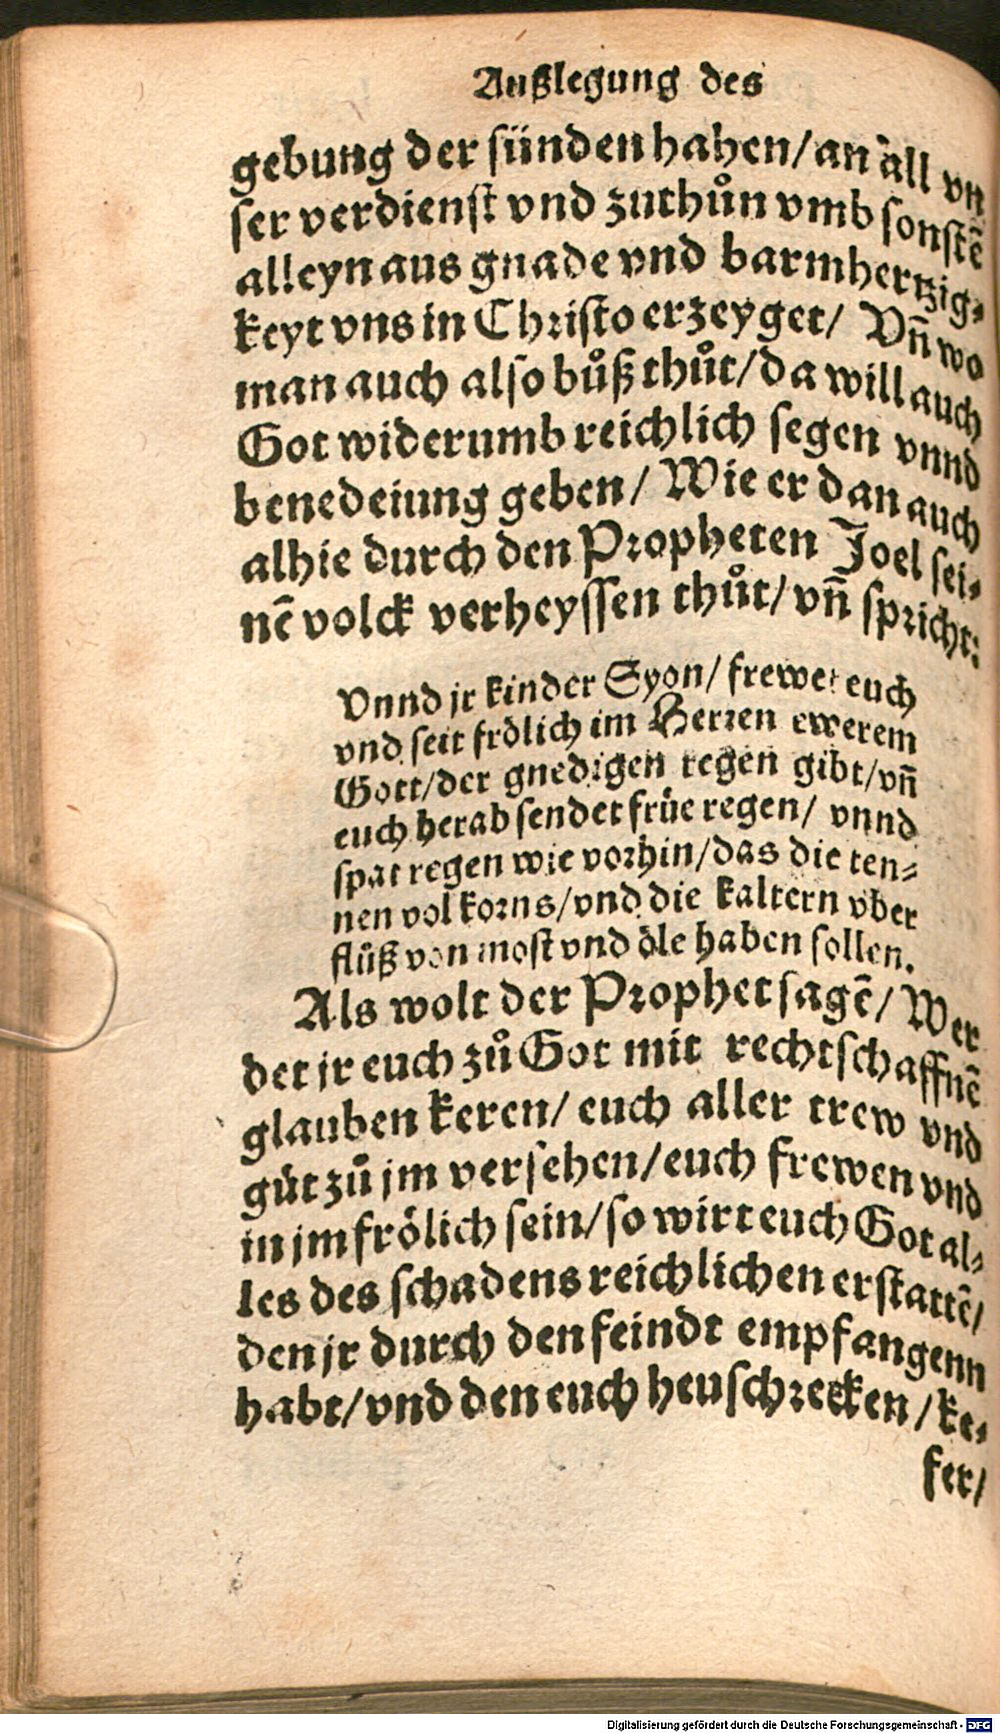 Außlegung des
gebung der sünden hahen/ an all vn
ser verdienst vnd zuthůn vmb sonstē
alleyn aus gnade vnd barmhertzig⸗
keyt vns in Christo erzeyget/ Vn̄ wo
man auch also bůß thůt/ da will auch
Got widerumb reichlich segen vnnd
benedeiung geben/ Wie er dan auch
alhie durch den Propheten Joel sei⸗
nē volck verheyssen thůt/ vn̄ spricht:
Vnnd jr kinder Syon/ frewet euch
vnd seit frölich im Herren ewerem
Gott/ der gnedigen regen gibt/ vn̄
euch herab sendet früe regen/ vnnd
spat regen wie vorhin/ das die ten⸗
nen vol korns/ vnd die kaltern vber
flüß von most vnd öle haben sollen.
Als wolt der Prophet sagē/ Wer
det jr euch zů Got mit rechtschaffnē
glauben keren/ euch aller trew vnd
güt zů jm versehen/ euch frewen vnd
in jm frölich sein/ so wirt euch Got al⸗
les des schadens reichlichen erstattē/
den jr durch den feindt empfangenn
habt/ vnd den euch heuschrecken/ ke⸗
fer/
Digitalisierung gefördert durch die Deutsche Forschungsgemeinschaft - DFG